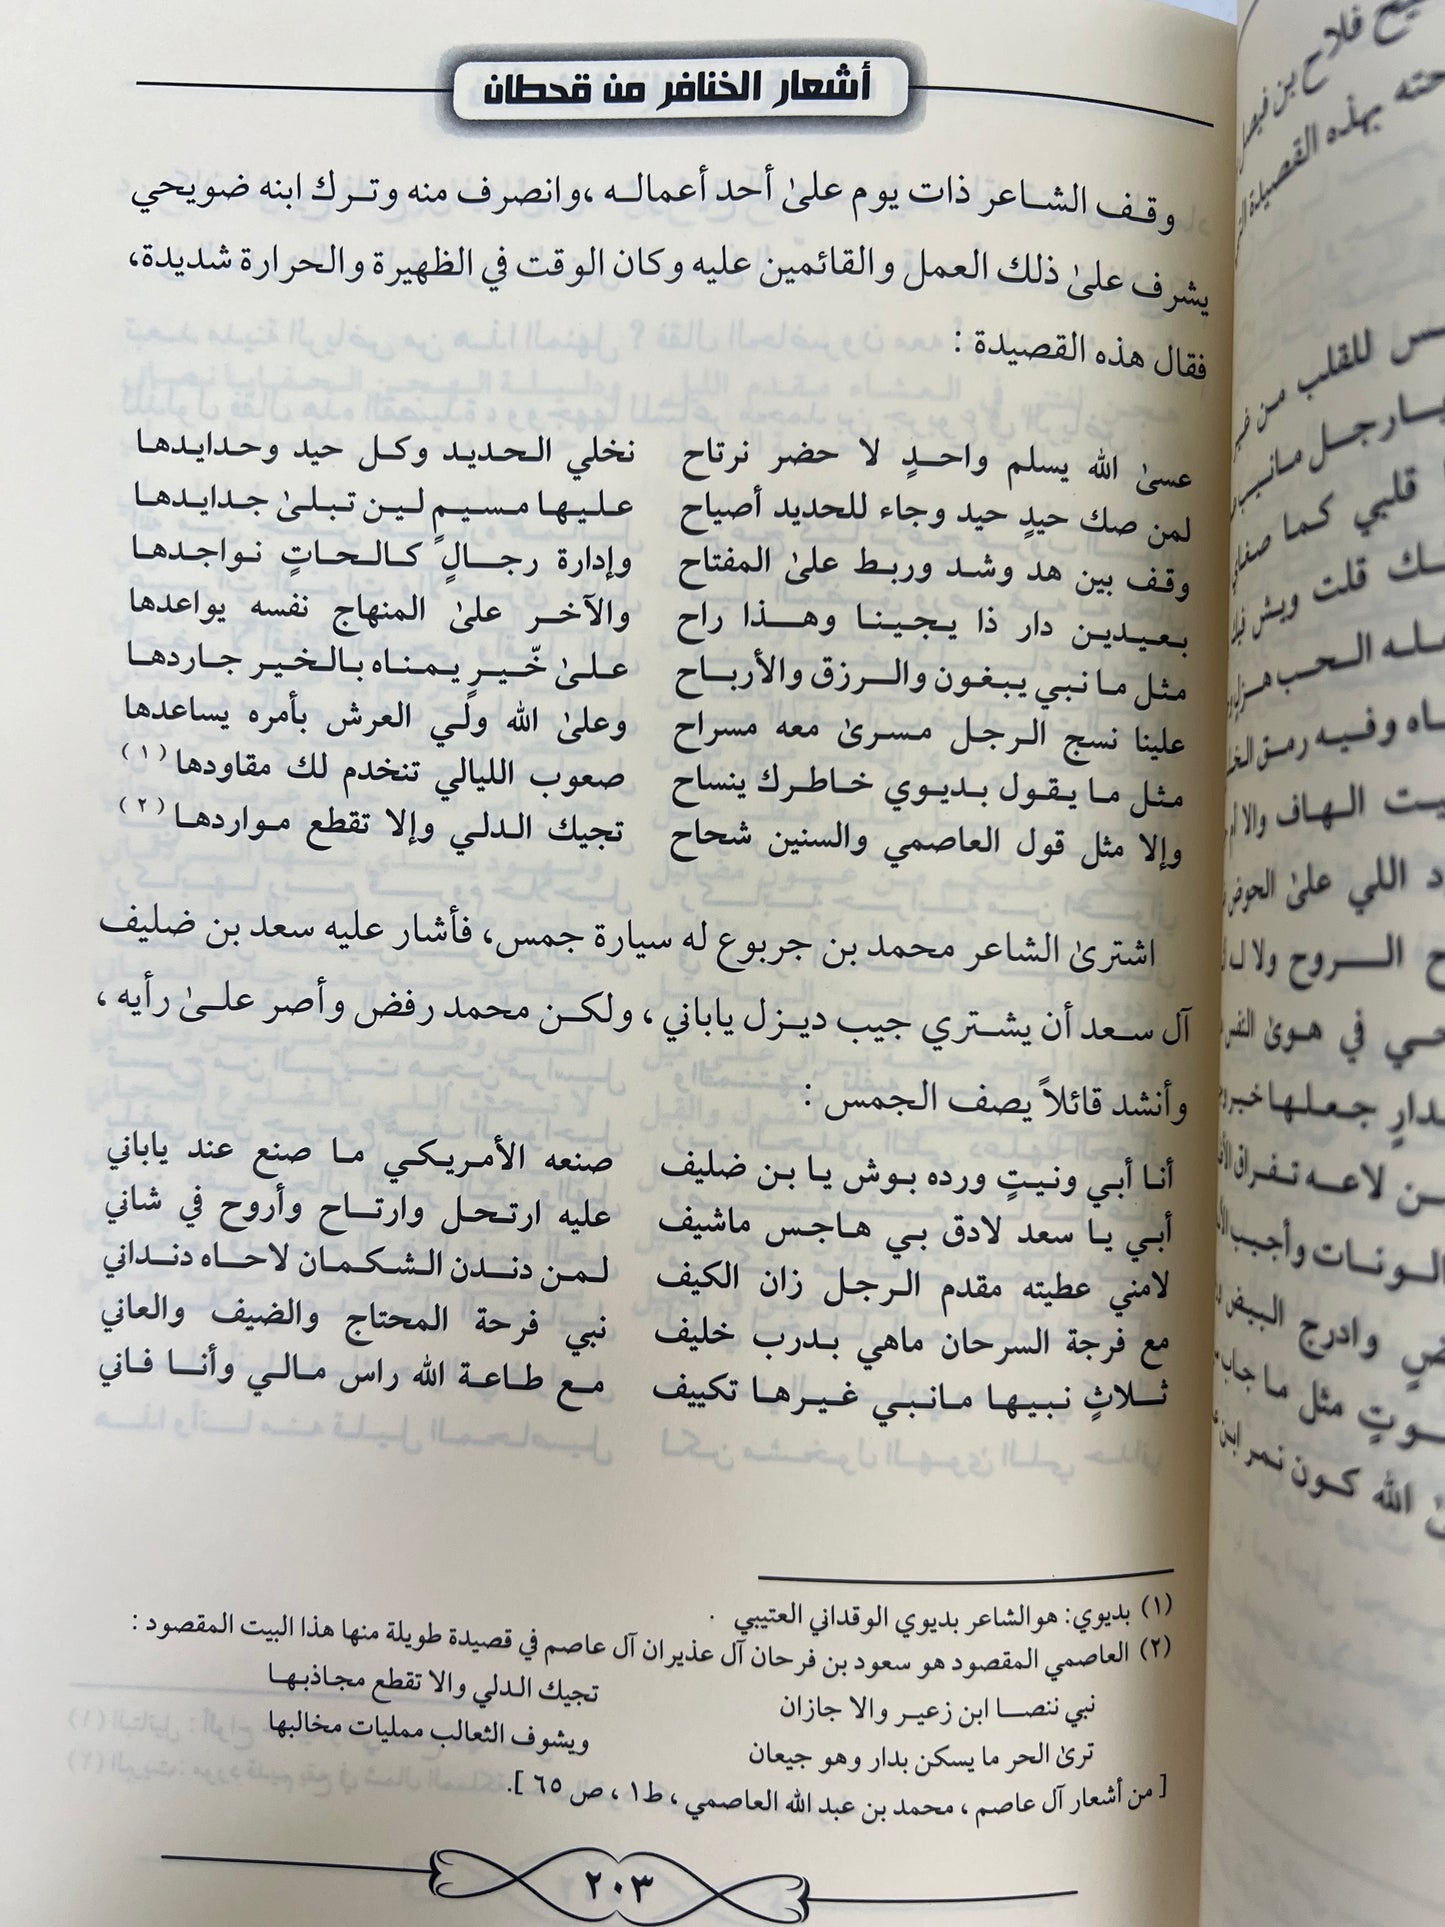 أشعار الخنافر من قحطان
وقف الشاعر ذات يوم علىٰ أحد أعماله ،وانصرف منه وترك ابنه ضويحي
يشرف علىٰ ذلك العمل والقائمين عليه وكان الوقت في الظهيرة والحرارة شديدة،
فقال هذه القصيدة :
عسىٰ الله يسلم واحدٍ لا حضر نرتاح نخلي الحديد وكل حيد وحدايدها
لمن صك حيدٍ حيد وجاء للحديد أصياح عليها مسيمٍ لين تبلىٰ جدايدها
وقف بين هد وشد وربط علىٰ المفتاح وإدارة رجالٍ كالحاتٍ نواجدها
بعيدين دار ذا يجينا وهذا راح والآخر علىٰ المنهاج نفسه يواعدها
مثل مانبي يبغون والرزق والأرباح علىٰ خّيرٍ يمناه بالخير جاردها
علينا نسج الرجل مسرىٰ معه مسراح وعلىٰ الله ولي العرش بأمره يساعدها
مثل ما يقول بديوي خاطرك ينساح صعوب الليالي تنخدم لك مقاودها (١)
وإلا مثل قول العاصمي والسنين شحاح تجيك الدلي وإلا تقطع مواردها (٢)
اشترىٰ الشاعر محمد بن جربوع له سيارة جمس، فأشار عليه سعد بن ضليف
آل سعد أن يشتري جيب ديزل ياباني ، ولكن محمد رفض وأصر علىٰ رأيه ،
وأنشد قائلاً يصف الجمس :
أنا أبي ونيتٍ ورده بوش يا بن ضليف صنعه الأمريكي ما صنع عند ياباني
أبي يا سعد لادق بي هاجس ماشيف عليه ارتحل وارتاح وأروح في شاني
لامني عطيته مقدم الرجل زان الكيف لمن دندن الشكمان لاحاه دنداني
مع فرجة السرحان ماهي بدرب خليف نبي فرحة المحتاج والضيف والعاني
ثلاثٍ نبيها مانبي غيرها تكييف مع طاعة الله راس مالي وأنا فاني
(١) بديوي: هوالشاعر بديوي الوقداني العتيبي .
(٢) العاصمي المقصود هو سعود بن فرحان آل عذيران آل عاصم في قصيدة طويلة منها هذا البيت المقصود :
نبي ننصا ابن زعير والا جازان تجيك الدلي والا تقطع مجاذبها
ترىٰ الحر ما يسكن بدار وهو جيعان ويشوف الثعالب ممليات مخالبها
[ من أشعار آل عاصم ، محمد بن عبد الله العاصمي ، ط١ ، ص ٦٥ ].
٢٠٣